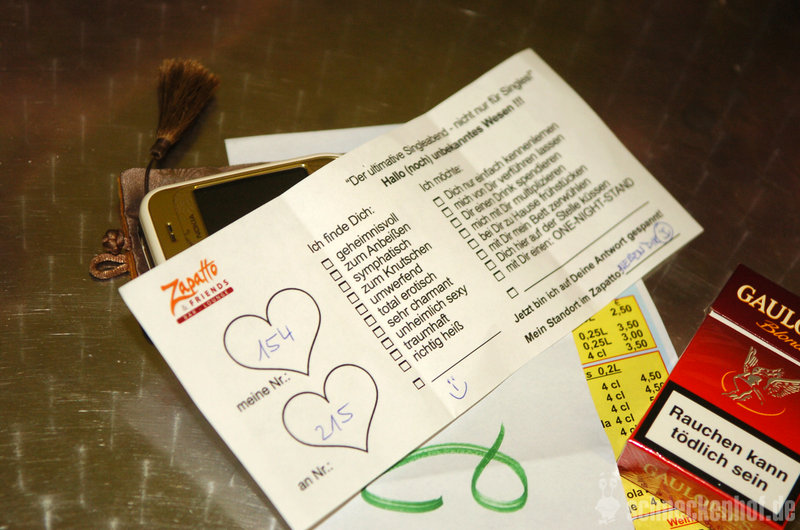 "Der ultimative Singleabend - nicht nur für Singles!"
Hallo (noch) unbekanntes Wesen !!!
Ich finde Dich:
geheimnisvoll
zum Anbeißen
symphatisch
zum Knutschen
umwerfend
total erotisch
sehr charmant
unheimlich sexy
traumhaft
richtig heiß
Ich möchte:
Dich nur einfach kennenlernen
mich von Dir verführen lassen
Dir einen Drink spendieren
mich mit Dir multiplizieren
bei Dir zu Hause frühstücken
mit Dir mein Bett zerwühlen
Dich hier auf der Stelle küssen
mit Dir einen: ONE-NIGHT-STAND
Jetzt bin ich auf Deine Antwort gespannt!
Mein Standort im Zapatto: NEBEN DIR
Zapatto
& FRIENDS
BAR - LOUNGE
154
meine Nr.:
215
an Nr.:
NOKIA
€
0,25L 3,50
0,25L 3,00
4 cl 3,50
0,2L
4 cl 4,50
4 cl
4 cl
4 cl
GAULO
Blond
Rauchen kann
tödlich sein
GAULO
schneckenhof.de